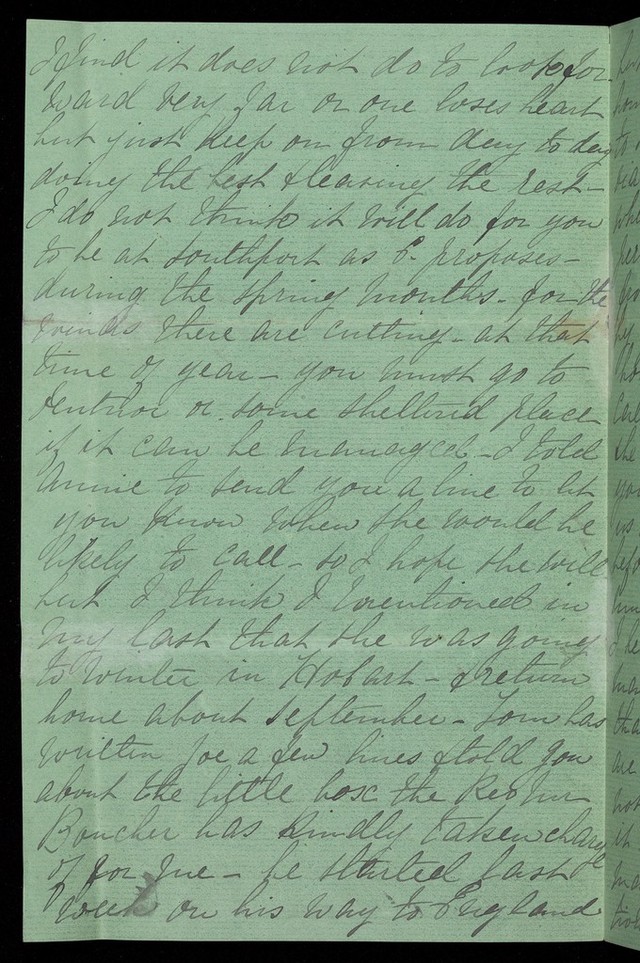 I find it does not do to look for-
ward very far or one loses heart
but just keep on from day to day
doing the best & leaving the rest -
I do not think it will do for you
to be at Southport as E. proposes -
during the spring months - for the
winds there are cutting - at that
time of year - you must go to
Ventnor or some sheltered place
if it can be managed - I told
Annie to send you a line to let
you know when she would be
likely to call - so I hope she will
but I think I mentioned in
my last that she was going
to winter in Hobart - & return
home about September - Tom has
written Joe a few lines & told you
about the little box the Revd Mr
Boucher has kindly taken charge
of for me - he started last
week on his way to England